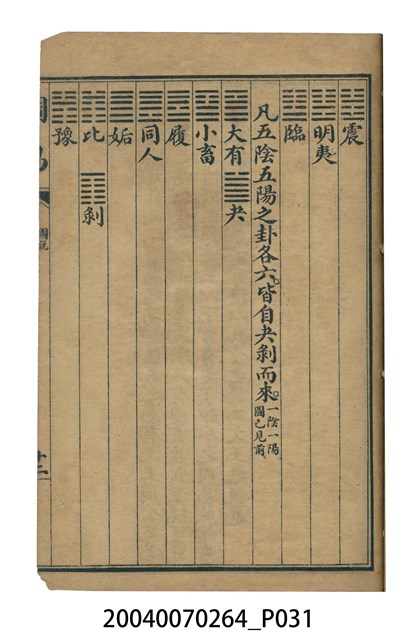 震
明夷
臨
凡五陰五陽之卦各六。皆自夬剝而來。一陰一陽圖已見前
大有 夬
小畜
履
同人
姤
比 剝
豫
圖說
20040070264_P031